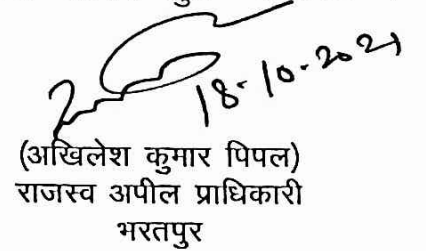 18-10-2021
(अखिलेश कुमार पिपल)
राजस्व अपील प्राधिकारी
भरतपुर